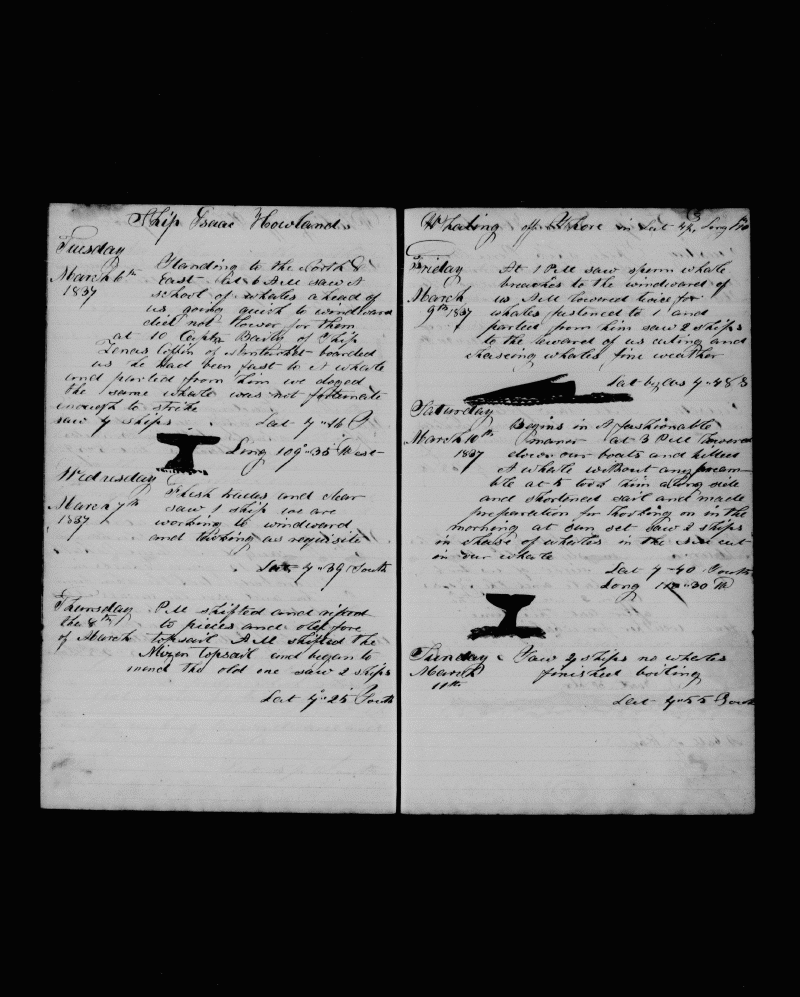 Ship Isaac Howland
Tuesday
March 6th
1837
Standing to the North &
East at 6 AM saw A
school of whales ahead of
us going quick to windward
did not lower for them
at 10 Captn Baily of Ship
Zenas Coffin of Nantucket boarded
us he Had been fast to A whale
and parted from him we doged
the same whale was not fortunate
enough to strike
saw 4 ships Lat 4-46 S
Long 109-35 West
Wednesday
March 7th
1837
Fresh trades and clear
saw 1 ship we are
working to windward
and tacking as requisite
Lat 4-39 South
Thursday
the 8th
of March
PM shifted and riped
to pieces and old fore
topsail AM shifted the
Mizen topsail and began to
mend the old one saw 2 ships
Lat 4-25 South
Whaling off Shore in Lat Long
Friday
March
9th 1837
At 1 PM saw sperm whale
breaches to the windward of
us AM lowered twice for
whales fastened to 1 and
parted from him saw 2 ships
to the leward of us cuting and
chaseing whales fine weather
Lat by obs 4-48 S
Saturday
March 10th
1837
Begins in A fashionable
maner at 3 PM lowered
down our boats and killed
A whale without any
at 5 took him along side
and shortened sail and made
preparation for hooking on in the
morning at sun set Saw 2 ships
in chase of whales in the cut
in our whale
Lat 4-40 South
Long 30 W
Sunday
March
11th
Saw 2 ships no whales
finished boiling
Lat 4-55 South